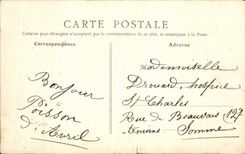 CARTE POSTALE
Tous les pays étrangers n'acceptent pas la correspondance de ce côté, se renseigner à la Poste
Correspondance
Adresse
Bonjour
Poisson
d'Avril
Mademoiselle
Drouard, hospice
St Charles
Rue de Beauvais 127
Amiens Somme